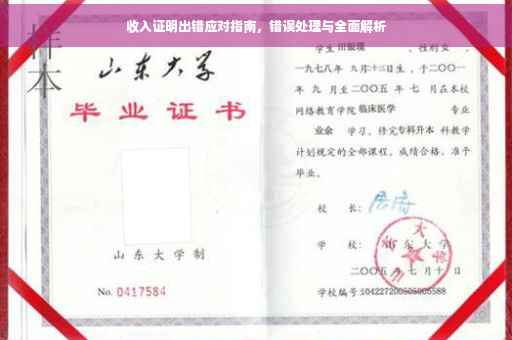 收入证明出错应对指南，错误处理与全面解析
样本
山东大学
毕业证书
山东大学制
No. 0417584
学生 田银瑛 ，性别女 ，
一九七八年 九月十三日生，于二〇〇一
年 九 月至二〇〇五 年 七 月在本校
网络教育学院 临床医学 专业
业余 学习，修完专科升本 科教学
计划规定的全部课程，成绩合格，准予
毕业。
校 长：
学 校：山东大学
二〇〇五 年 七 月 十 日
学校编号:104227200505005588